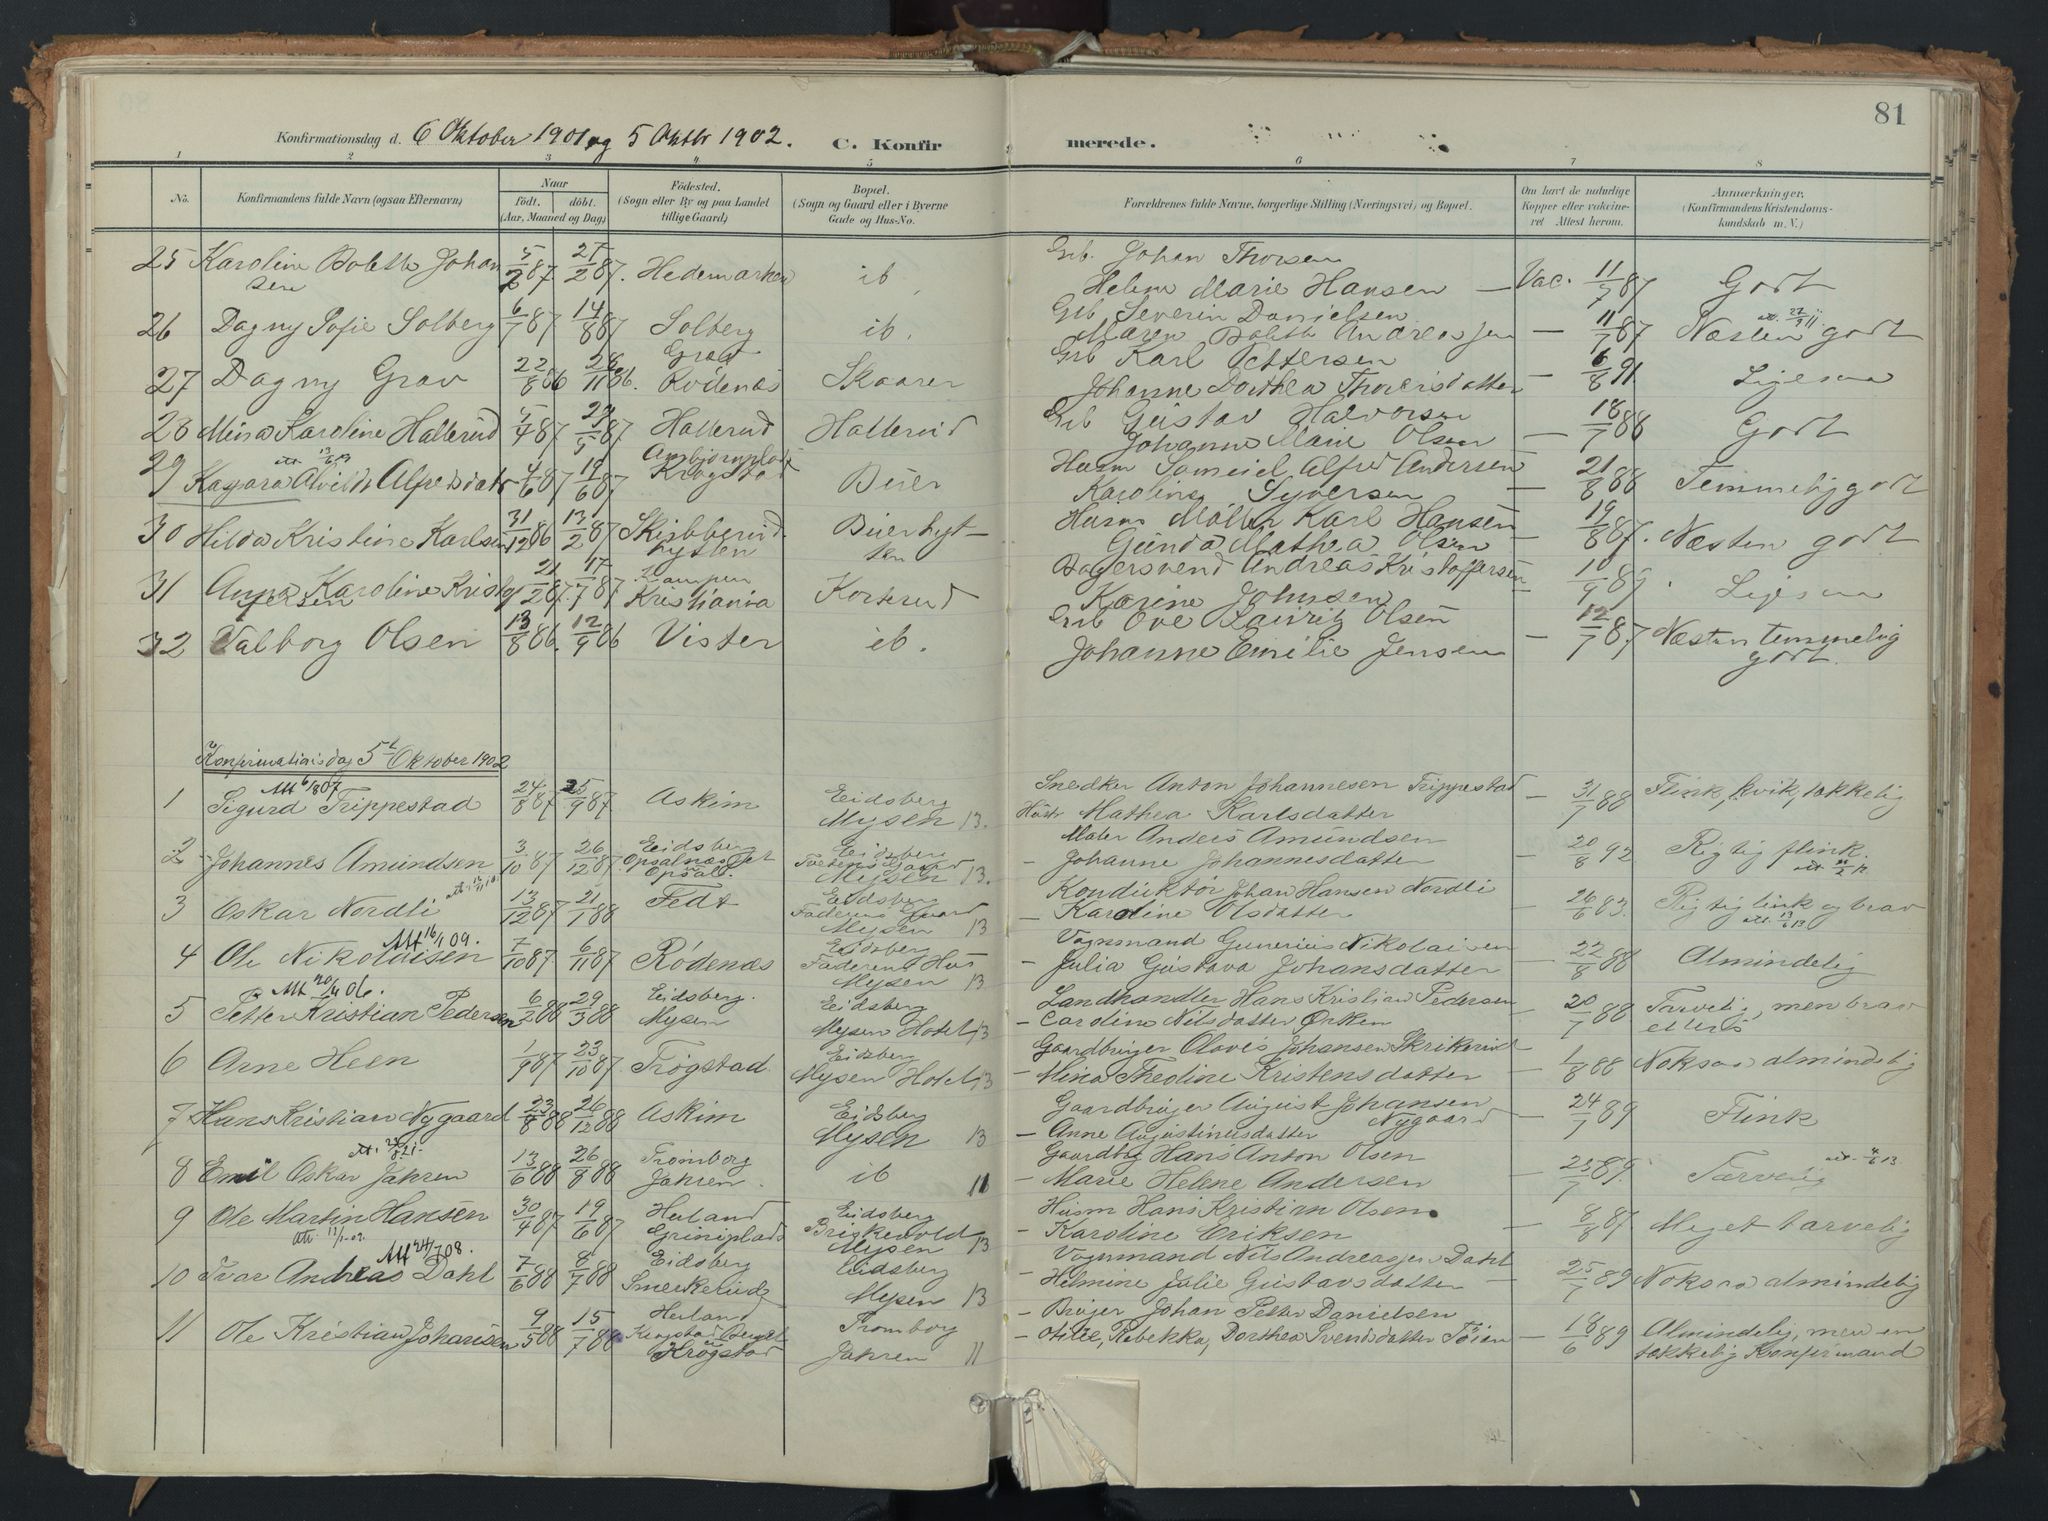 81
Konfirmationsdag d. 6 Oktober 1901 og 5 Oktbr 1902. C. Konfir merede.
1 2 3 4 5 6 7 8
No. Konfirmandens fulde Navn (ogsaa Efternavn) Naar födt. döbt. (Aar, Maaned og Dag) Födested. (Sogn eller By og paa Landet tillige Gaard) Bopæl. (Sogn og Gaard eller i Byerne Gade og Hus-No. Forældrenes fulde Navne, borgerlige Stilling (Næringsvei) og Bopæl. Om havt de naturlige Kopper eller vakcineret Attest herom. Anmærkninger, (Konfirmandens Kristendomskundskab m. V.)
25 Karoline Bolette Johansen 5/2 87 27/2 87. Hedemarken ib. Grb. Johan Thorsen
Helene Marie Hansen — Vac. 11/7 87 Godt
26 Dagny Sofie Solberg 6/7 87 14/8 87 Solberg ib. Grb Severin Danielsen
Maren Bolette Andreassen — 11/7 87 Næsten godt
27 Dagny Grav 22/8 86 28/11 86. Grav Rödenæs Skaarer Grb Karl Pettersen
Johanne Dorthea Thorersdatter — 6/8 91 Ligesaa
28 Mina Karoline Hallerud 5/4 87 29/5 87 Hallerud Hallerud Grb Gustav Halvorsen
Johanne Marie Olsen — 18/7 88 Godt
29 Kaspara Alvilde Alfredsdatr 4/6 87 19/6 87 Krogstad Buer Husm Samuel Alfred Andersen
Karoline Syversen — 21/8 88 Temmelig godt
30 Hilda Kristine Karlsen 31/12 86 13/2 87 Skibberudhytten Buerhytten Husm Möller Karl Hansen
Gunda Mathea Olsen — 19/8 87. Næsten godt
31 Anna Karoline Kristoffersen 21/2 87. 17/7 87 Kampen Kristiania Korterud Bagersvend Andreas Kristoffersen
Karine Johnsen 10/9 89. Ligesaa
32 Valborg Olsen 13/8 86. 12/9 86 Vister ib. Grb Ove Lauritz Olsen
Johanne Emilie Jensen — 12/7 87. Næsten temmelig godt.
Konfirmationsdag 5te Oktober 1902
1 Att 6/8 07 Sigurd Trippestad 24/8 87 25/9 87. Askim Eidsberg Mysen 13. Snedker Anton Johannesen Trippestad
Hustr Mathea Karlsdatter — 31/7 88 Flink, kvik, tækkelig
2 Johannes Amundsen 3/10 87 26/12 87. Eidsberg Opsal Eidsberg Mysen 13. Maler Anders Amundsen
- Johanne Johannesdatter — 20/8 92 Rigtig flink.
3 Oskar Nordli 13/12 87 21/1 88 Fedt Eidsberg Faderens Gaard Mysen 13 Konduktör Johan Hansen Nordli
- Karoline Olsdatter — 26/6 83. Rigtig flink og brav
4 Ole Nikolaisen Att 16/1 09. 7/10 87 6/11 87 Rödenæs Eidsberg Faderens Hus Mysen 13 Vognmand Gunerius Nikolaisen
- Julia Gustava Johansdatter — 22/8 88 Almindelig
5 Att 20/4 06. Petter Kristian Pedersen 6/2 88 29/3 88 Eidsberg. Mysen Eidsberg Mysen Hotel 13 Landhandler Hans Kristian Pedersen
- Caroline Nilsdatter Ørken — 20/7 88 Tarvelig, men brav ellers
6 Arne Heen 1/9 87 23/10 87 Trögstad. Eidsberg Mysen Hotel 13 Gaardbruger Olaves Johansen Skrikerud
- Mina Theoline Kristensdatter — 1/8 88 Noksaa almindelig
7 Hans Kristian Nygaard 23/8 88 26/12 88 Askim Eidsberg Mysen 13 Gaardbruger August Johansen Nygaard
- Anne Augustinusdatter — 24/7 89 Flink
8 Emil Oskar Jahren 13/6 88 26/8 88 Tromborg Jahren. ib 11 Gaardbr Hans Anton Olsen
- Marie Helene Andersen — 25/7 89. Tarvelig
9 Ole Martin Hansen 30/4 87 19/6 87 Heiland Griniplads Eidsberg Brigkevold Mysen 13 Husm Hans Kristian Olsen
- Karoline Eriksen 8/8 87. Meget tarvelig
10 Att 24/7 08. Ivar Andreas Dahl 7/6 88 8/7 88 Eidsberg Smerkerud Eidsberg Mysen 13 Vognmand Nils Andreassen Dahl
- Helmine Julie Gustavsdatter — 25/7 89 Noksaa almindelig
11 Ole Kristian Johansen 9/5 88 15/7 88 Heiland Krogstad Tromborg Jahren 11 - Bruger Johan Petter Danielsen
- Otilie, Rebekka, Dorthea Svendsdatter Töien — 18/6 89 Almindelig, men en tækkelig Konfirmand